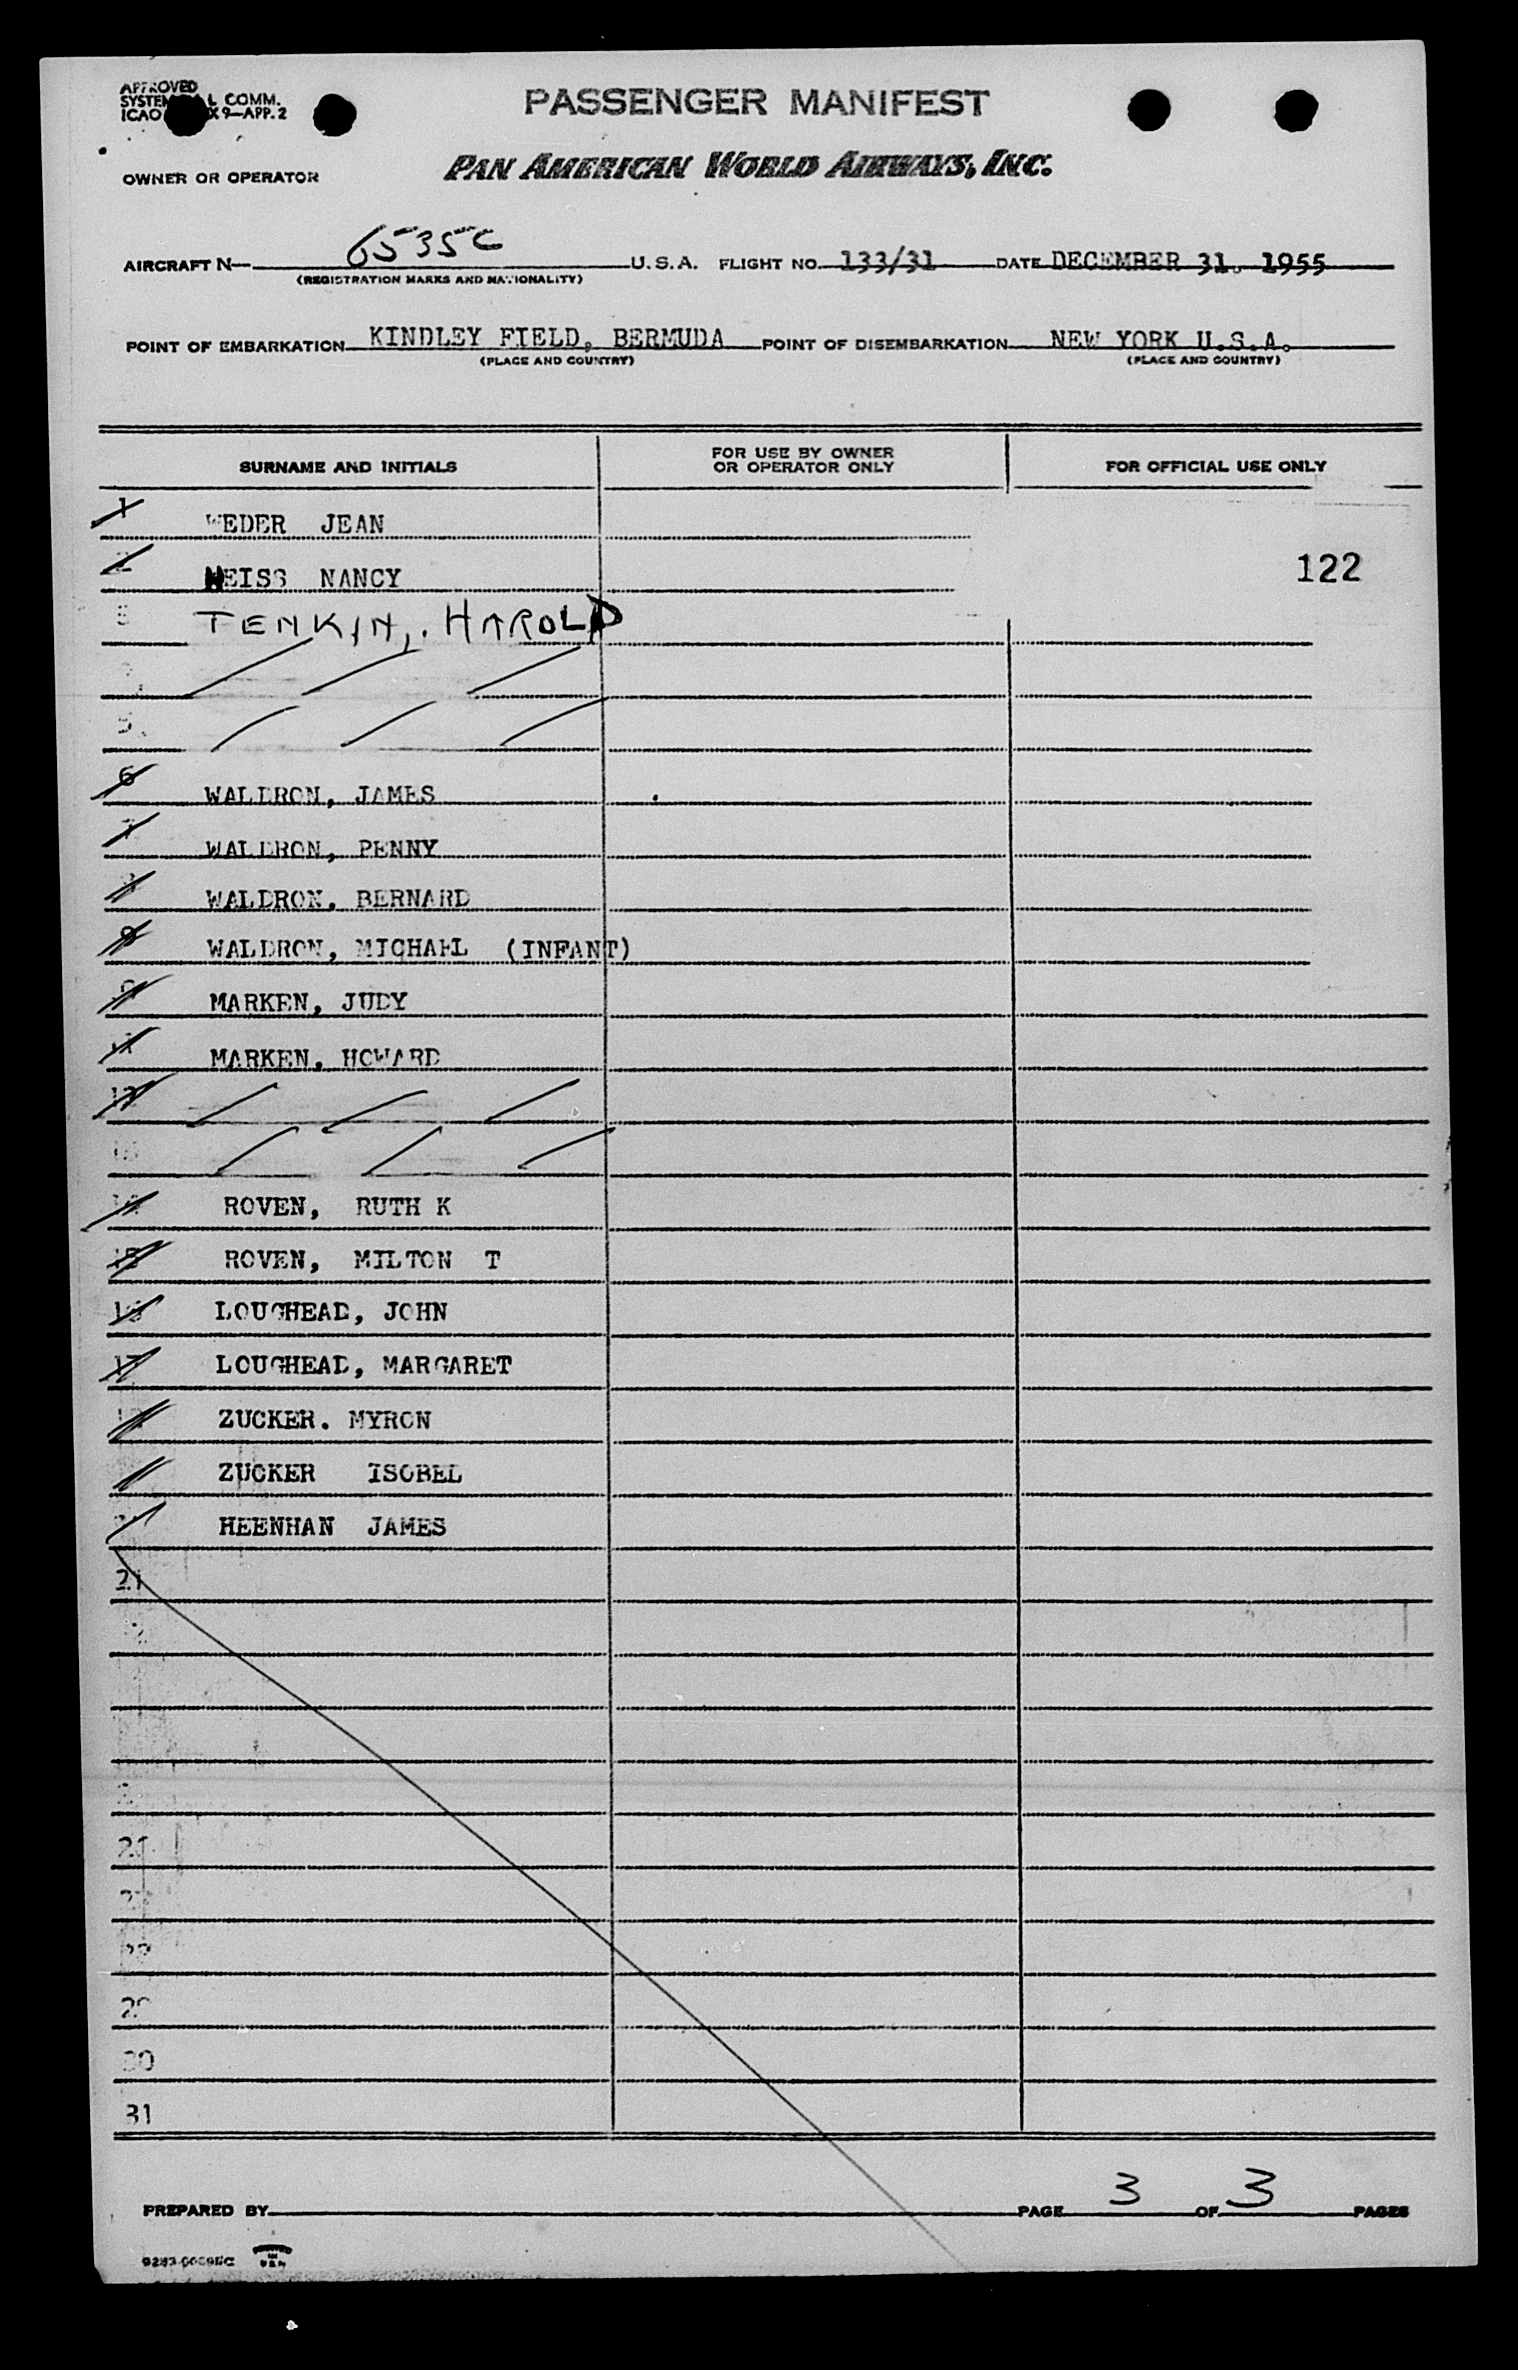 APPROVED
SYSTEM L COMM.
ICAO X 9—APP. 2
PASSENGER MANIFEST
OWNER OR OPERATOR
PAN AMERICAN WORLD AIRWAYS, INC.
AIRCRAFT N— 6535C U.S.A. FLIGHT NO. 133/31 DATE DECEMBER 31. 1955
(REGISTRATION MARKS AND NATIONALITY)
POINT OF EMBARKATION KINDLEY FIELD, BERMUDA POINT OF DISEMBARKATION NEW YORK U.S.A.
(PLACE AND COUNTRY) (PLACE AND COUNTRY)
SURNAME AND INITIALS FOR USE BY OWNER OR OPERATOR ONLY FOR OFFICIAL USE ONLY
1 WEDER JEAN
2 WEISS NANCY 122
TENKIN, HAROLD
5
6 WALDRON, JAMES
7 WALDRON, PENNY
8 WALDRON, BERNARD
9 WALDRON, MICHAEL (INFANT)
MARKEN, JUDY
11 MARKEN, HOWARD
12
14 ROVEN, RUTH K
15 ROVEN, MILTON T
16 LOUGHEAD, JOHN
17 LOUGHEAD, MARGARET
ZUCKER. MYRON
ZUCKER ISOBEL
HEENHAN JAMES
21
26
27
28
29
30
31
PREPARED BY PAGE 3 OF 3 PAGES